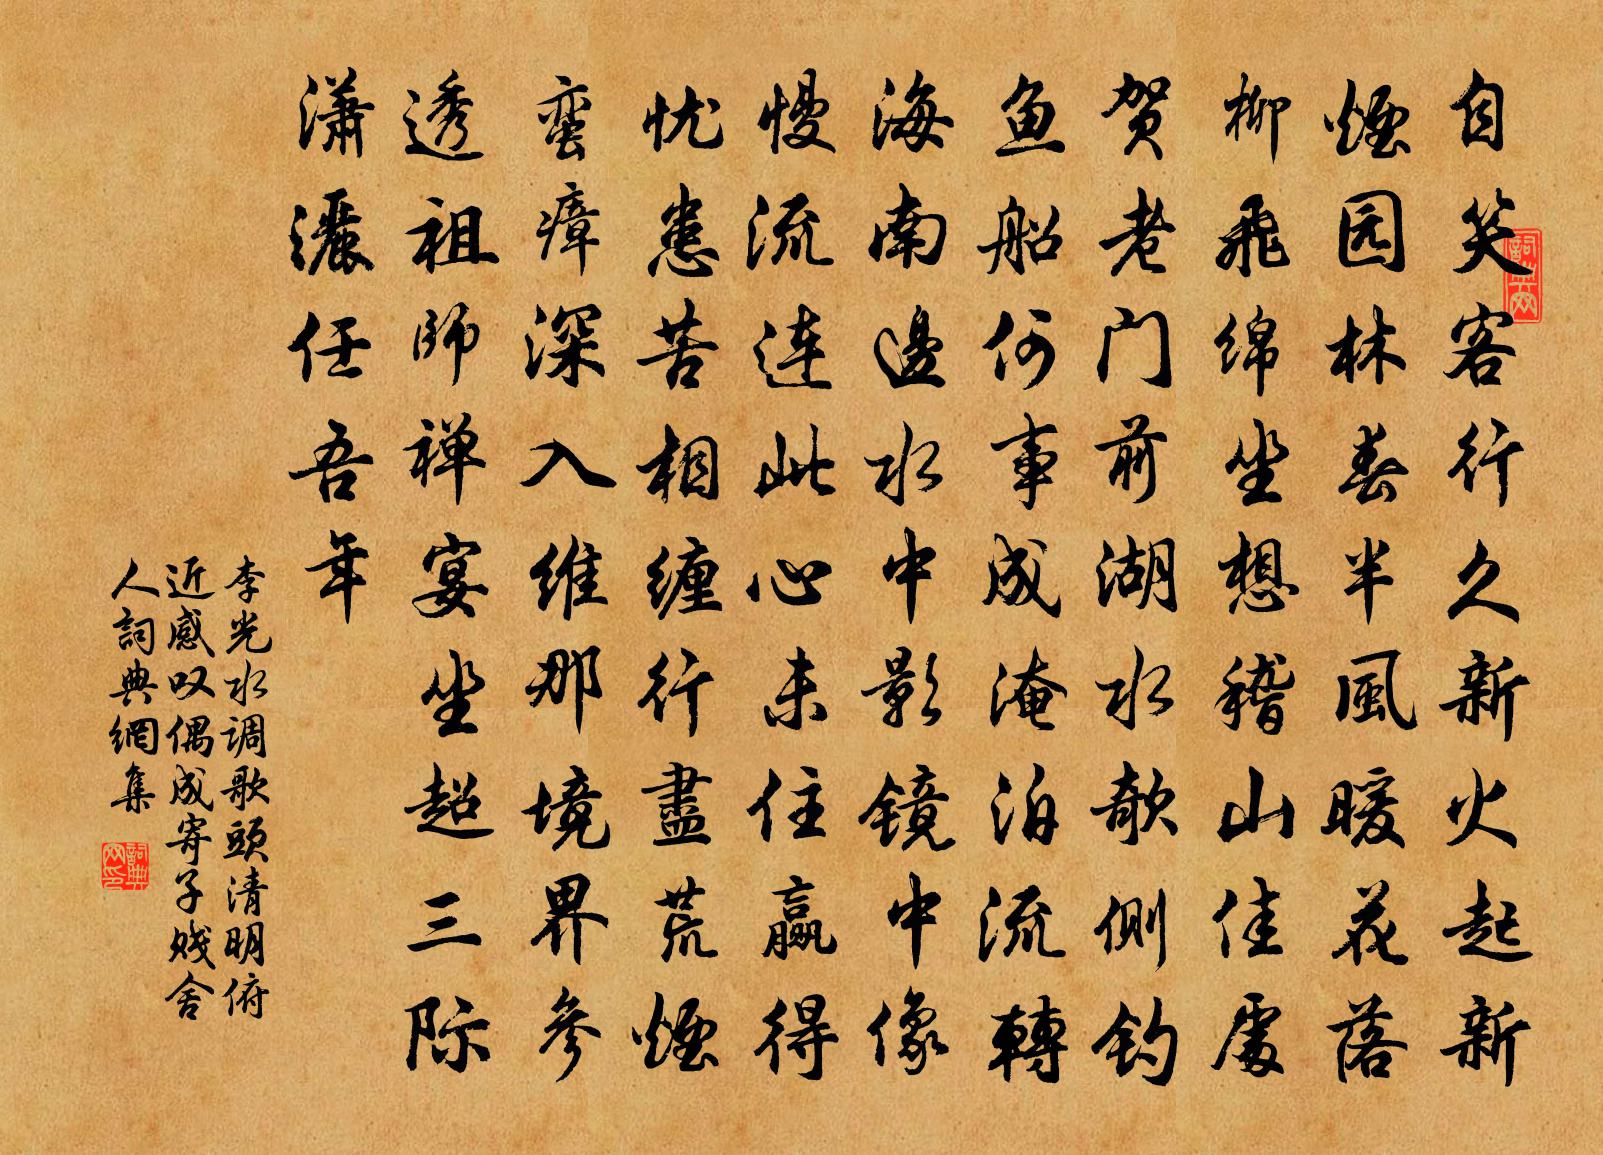 自笑客行久新火起新
煙园林春半風暖花落
柳飛绵坐想稽山佳處
贺老门前湖水欹侧钓
鱼船何事成淹泊流轉
海南邊水中影镜中像
慢流连此心未住赢得
忧患苦相缠行盡荒煙
蛮瘴深入维那境界參
透祖師禅宴坐超三际
潇灑任吾年
李光水调歌頭清明俯
近感叹偶成寄子贱舍
人詞典網集
詞典网
詞典网印